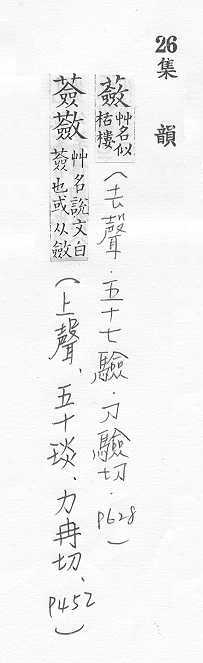 26 集韻
蘞 艸名似栝樓（去聲．五十七驗．力驗切．P628）
薟蘞 艸名說文白薟也或从斂（上聲、五十琰．力冉切、P452）